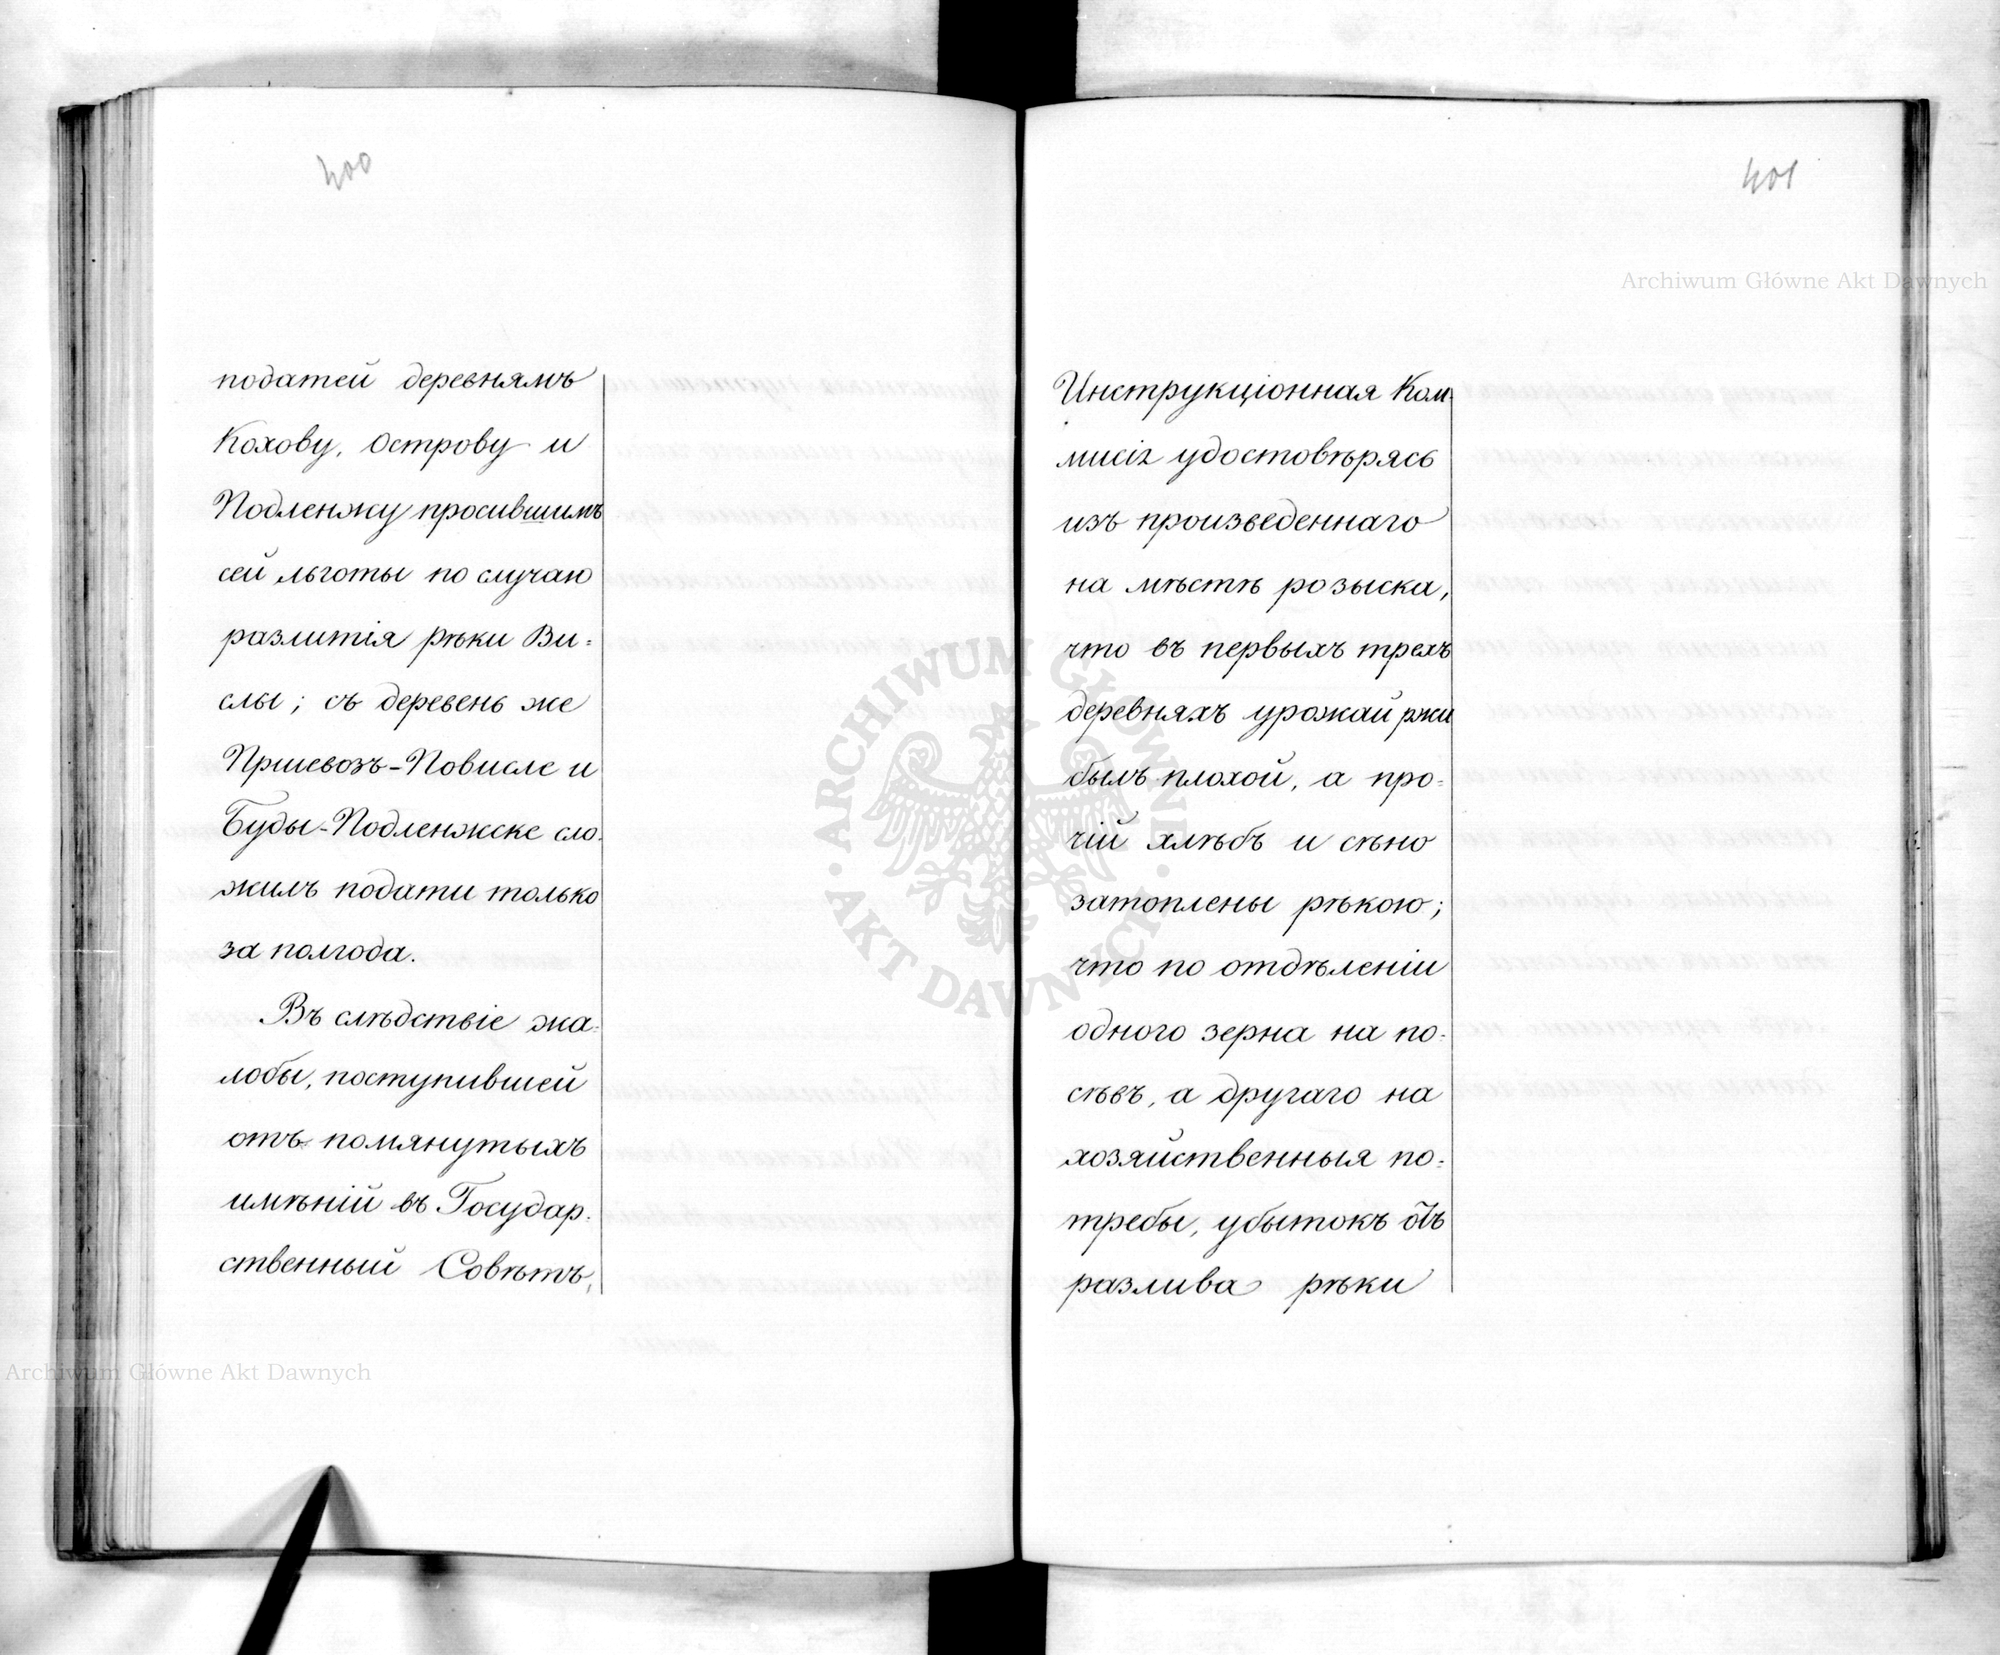 400
податей деревнямъ
Кохову, Острову и
Подленжу просившимъ
сей льготы по случаю
разлитія рѣки Ви=
слы; съ деревень же
Пршевозъ-Повисле и
Буды-Подленжске сло=
жилъ подати только
за полгода.
Въ слѣдствіе жа=
лобы, поступившей
отъ помянутыхъ
имѣній въ Государ=
ственный Совѣтъ,
401
Инструкціонная Ком=
мисія удостовѣрясь
изъ произведеннаго
на мѣстѣ розыска,
что въ первыхъ трехъ
деревняхъ урожай ржи
былъ плохой, а про=
чій хлѣбъ и сѣно
затоплены рѣкою;
что по отдѣленіи
одного зерна на по=
сѣвъ, а другаго на
хозяйственныя по=
требы, убытокъ отъ
разлива рѣки
Archiwum Główne Akt Dawnych
ARCHIWUM GŁÓWNE AKT DAWNYCH
Archiwum Główne Akt Dawnych